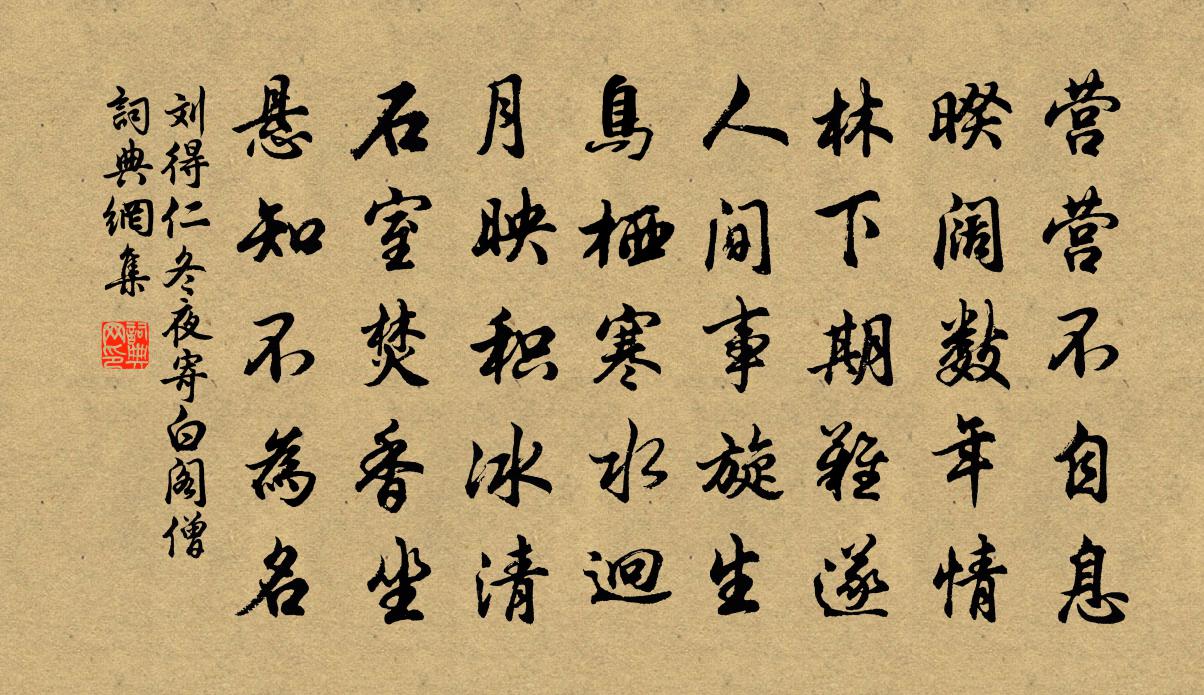 营营不自息
暌阔数年情
林下期難遂
人间事旋生
鳥栖寒水逈
月映积冰清
石室焚香坐
悬知不為名
刘得仁冬夜寄白阁僧
詞典網集
詞典网印